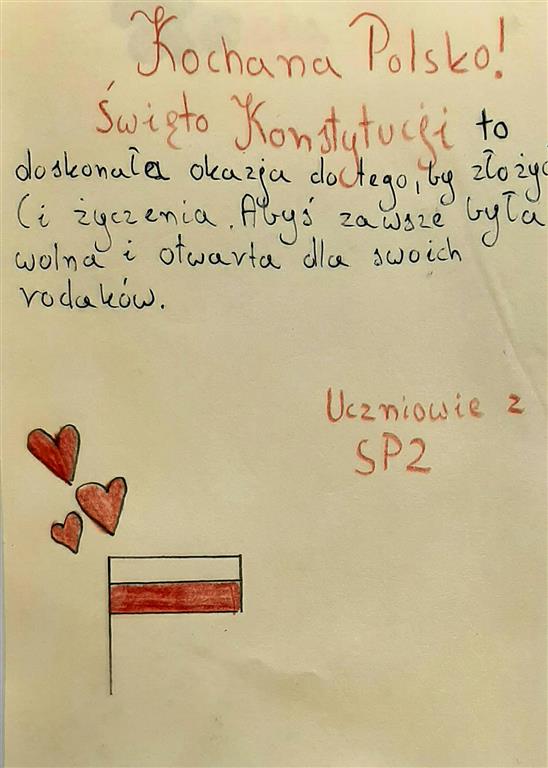 Kochana Polsko!
Święto Konstytucji to
doskonała okazja do tego, by złożyć
Ci życzenia. Abyś zawsze była
wolna i otwarta dla swoich
rodaków.
Uczniowie z
SP2